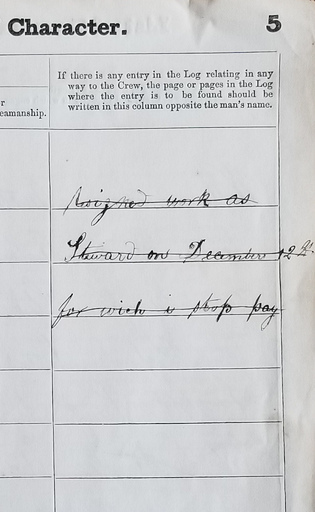 Character. 5
r
eamanship.
If there is any entry in the Log relating in any
way to the Crew, the page or pages in the Log
where the entry is to be found should be
written in this column opposite the man's name.
work as
Steward on December 12th
for wich i stop pay